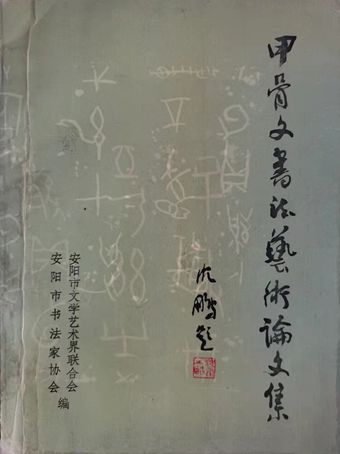 甲骨文书法藝術論文集
沈鹏题
安阳市文学艺术界联合会
安阳市书法家协会
编